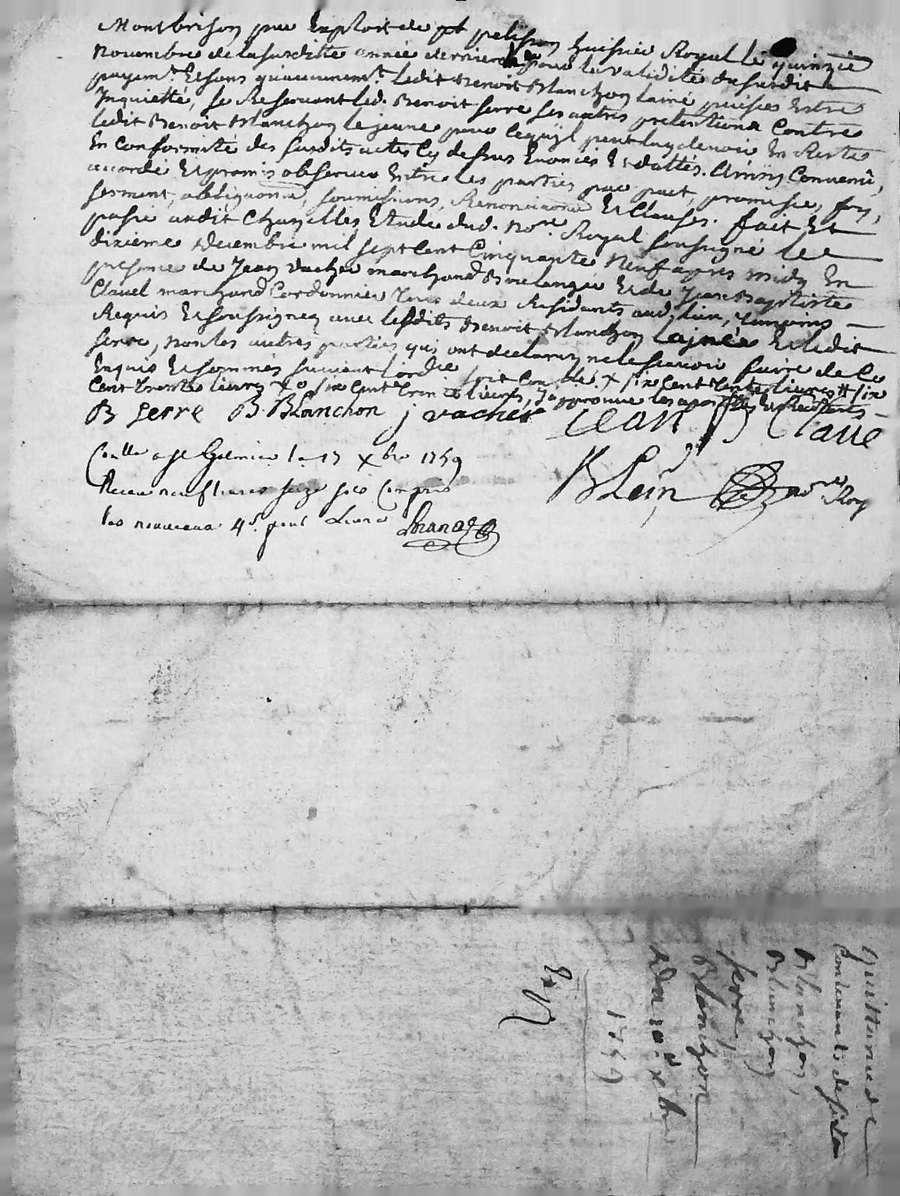 Montbrison par Exploit de pelisson huissier Royal le quinzie
novembre de la susditte année derniere pour la validité du susdit
payemt. Et sans que ledit Benoit Blanchon lainé puisse Estre
Inquietté, se Reservant led. Benoit serre ses autres pretentions Contre
ledit Benoit Blanchon le jeune pour ce quil peut luy devoir En Reste
En Conformité des susdits actes Cy dessus Enoncés Et dattés. Ainsy Convenu,
accordé Et promis observer Entre les parties par pact, promesse, foy,
serment, obligaons, soumissions, Renonciaons Et Clauses. fait Et
passé audit Chazelles Etude dud. nore Royal soussigné le
dixieme decembre mil sept Cent Cinquante Neuf apres midy En
presence de Jean vacher marchand Boulanger Et de Jean Baptiste
Clavel marchand Cordonnier tous deux Residants aud. lieu, temoins
Requis Et soussignez avec lesdits Benoit Blanchon lainé Et ledit
serre, non les autres parties qui ont declaré ne le scavoir faire de Ce
Enquis Et sommés suivant lordce
Cent trente livres
B serre B. Blanchon j vacher Jean B Clavel
Conllé a st Galmier le 17 xbre 1759
Receu neuf livres seize sols Compris
les nouveaux 4s. pour Livre
Blein nore Roy
Quittance
Contenant desista
Blanchon,
Blanchon
serre
Blanchon
Du 10e xbre
1759
Exp